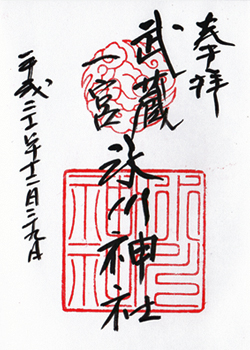 奉拝
武蔵
一宮
氷川神社
氷川神社
平成二十二年十二月二十九日